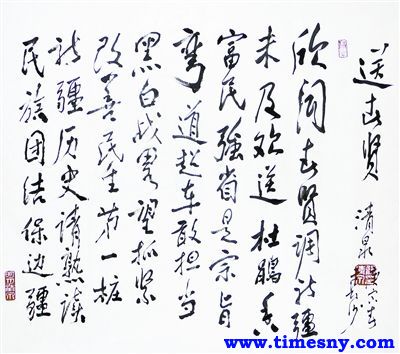 送春贤
清泉
欣闻春贤调新疆
未及欢送杜鹃香
富民强省是宗旨
弯道超车敢担当
黑白战略望抓紧
改善民生第一桩
新疆历史请熟读
民族团结保边疆
www.timesny.com